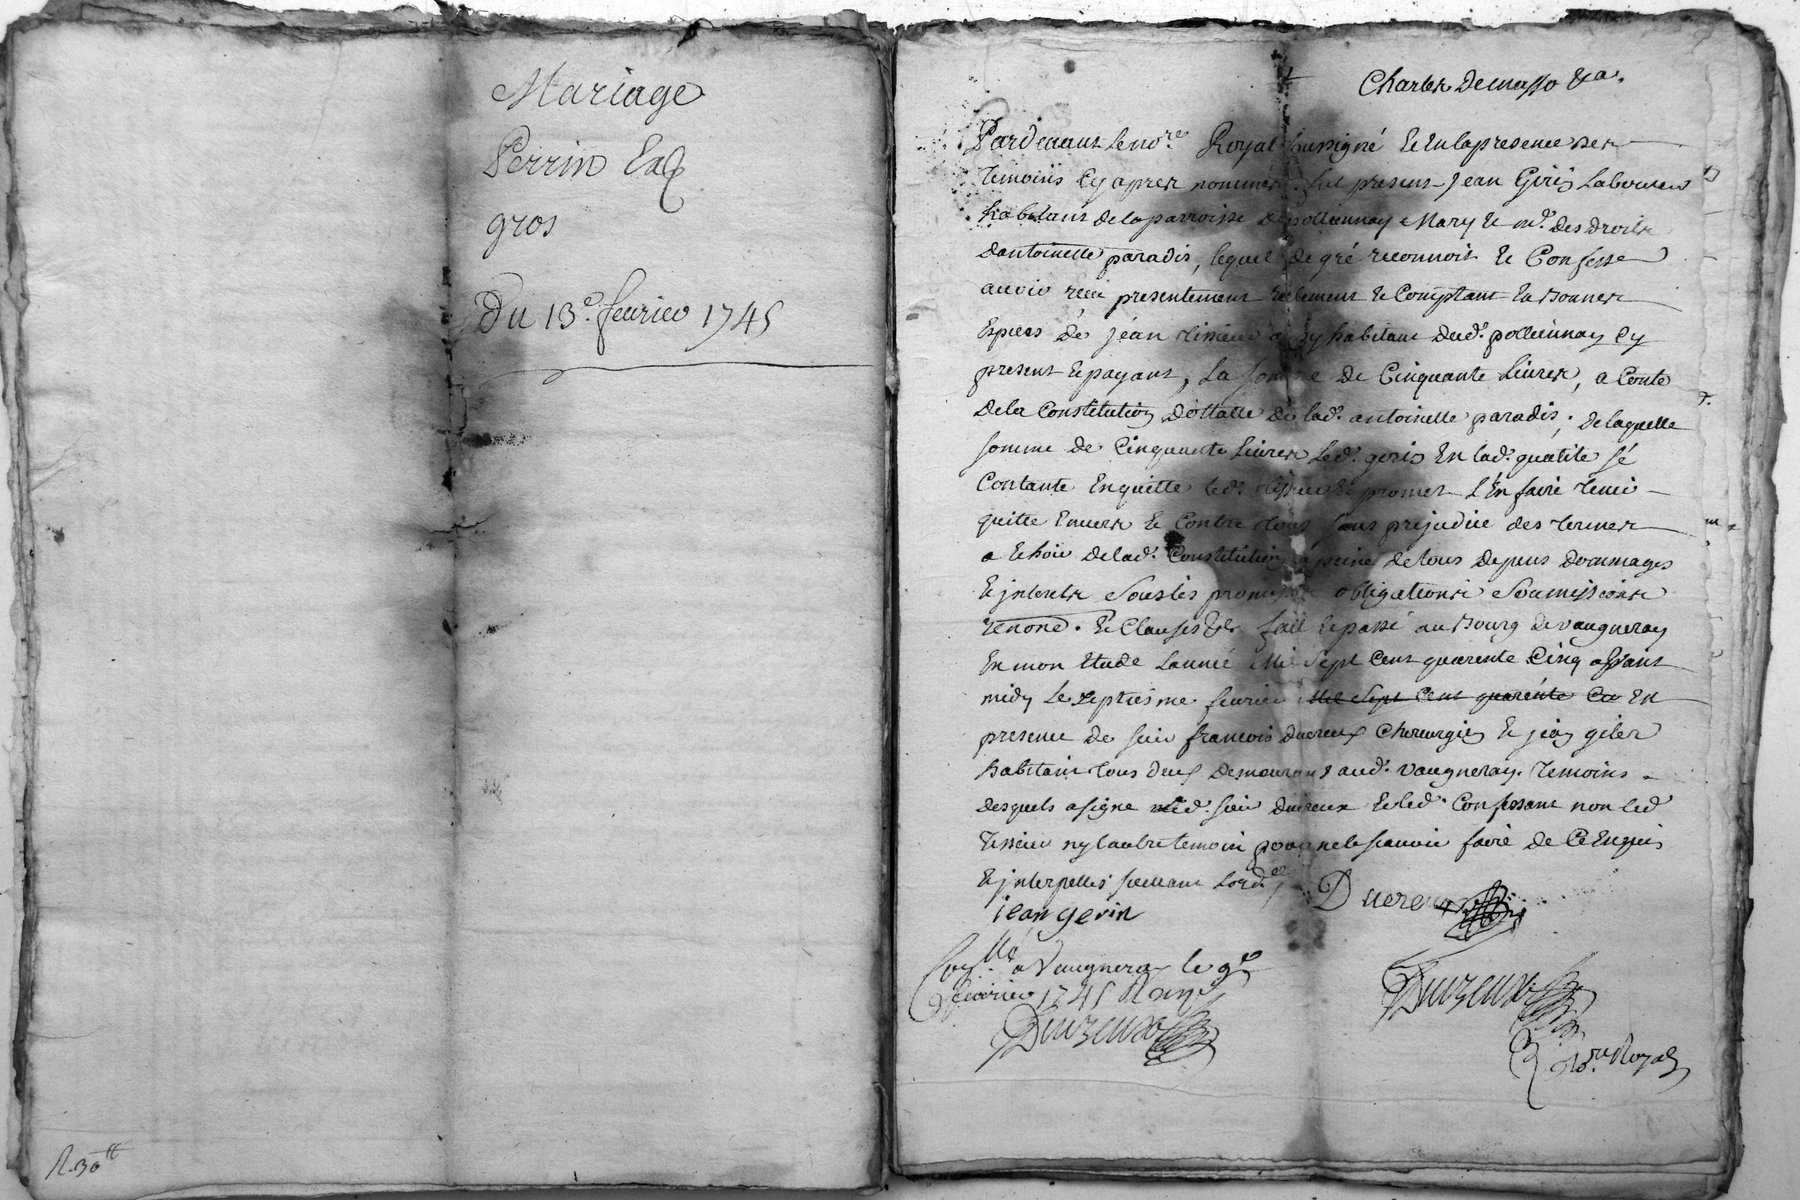 Mariage
Perrin Et
gros
Du 13e. fevrier 1745
R. 30tt
Charles Demasso &a.
Pardevant le nore. Royal soussigné Et En la presence des
Temoins Cy apres nommes. fut present Jean Giri Laboureur
habitant de la parroisse de pollionnay Mary Et me. des droits
dantoinette paradis, lequel de gré reconnoit Et Confesse
avoir receu presentement reelement Et Comptant En Bonnes
Especes de jean tissieur habitant dud. pollionnay Cy
present Et payant, La somme de Cinquante Livres, a Conte
de la Constitution dottalle de lad. antoinette paradis, de laquelle
somme de Cinquante Livres Led. gerin En lad. qualité sé
Contante En quitte led. tissieur Et promet L'En faire tenir
quitte Envers Et Contre tous sans prejudice des termes
a Echoir de lad. Constitution a peine de tous depens dommages
Et jnterets sous les promesses obligations soumissions
renone. Et Clauses &c fait Et passé au Bourg de vaugneray
En mon Etude L'année Mil Sept Cent quarente Cinq avant
midy Le septiesme fevrier Mil Sept Cent quarente Ci En
presence de sieur francois ducreux Chirurgien Et jean giler
habitant tous deux demeurans aud. vaugneray. temoins
desquels a signe led. sieur ducreux Et led. Confessant non led
tissieur ny lautre temoin pour ne le scavoir faire de Ce Enquis
Et jnterpellés suivant Lord.ce
jean gerin Ducreux
Conllé a Vaugneray le 9e
fevrier 1745 R
Ducreux
Ducreux
Nore. Royal